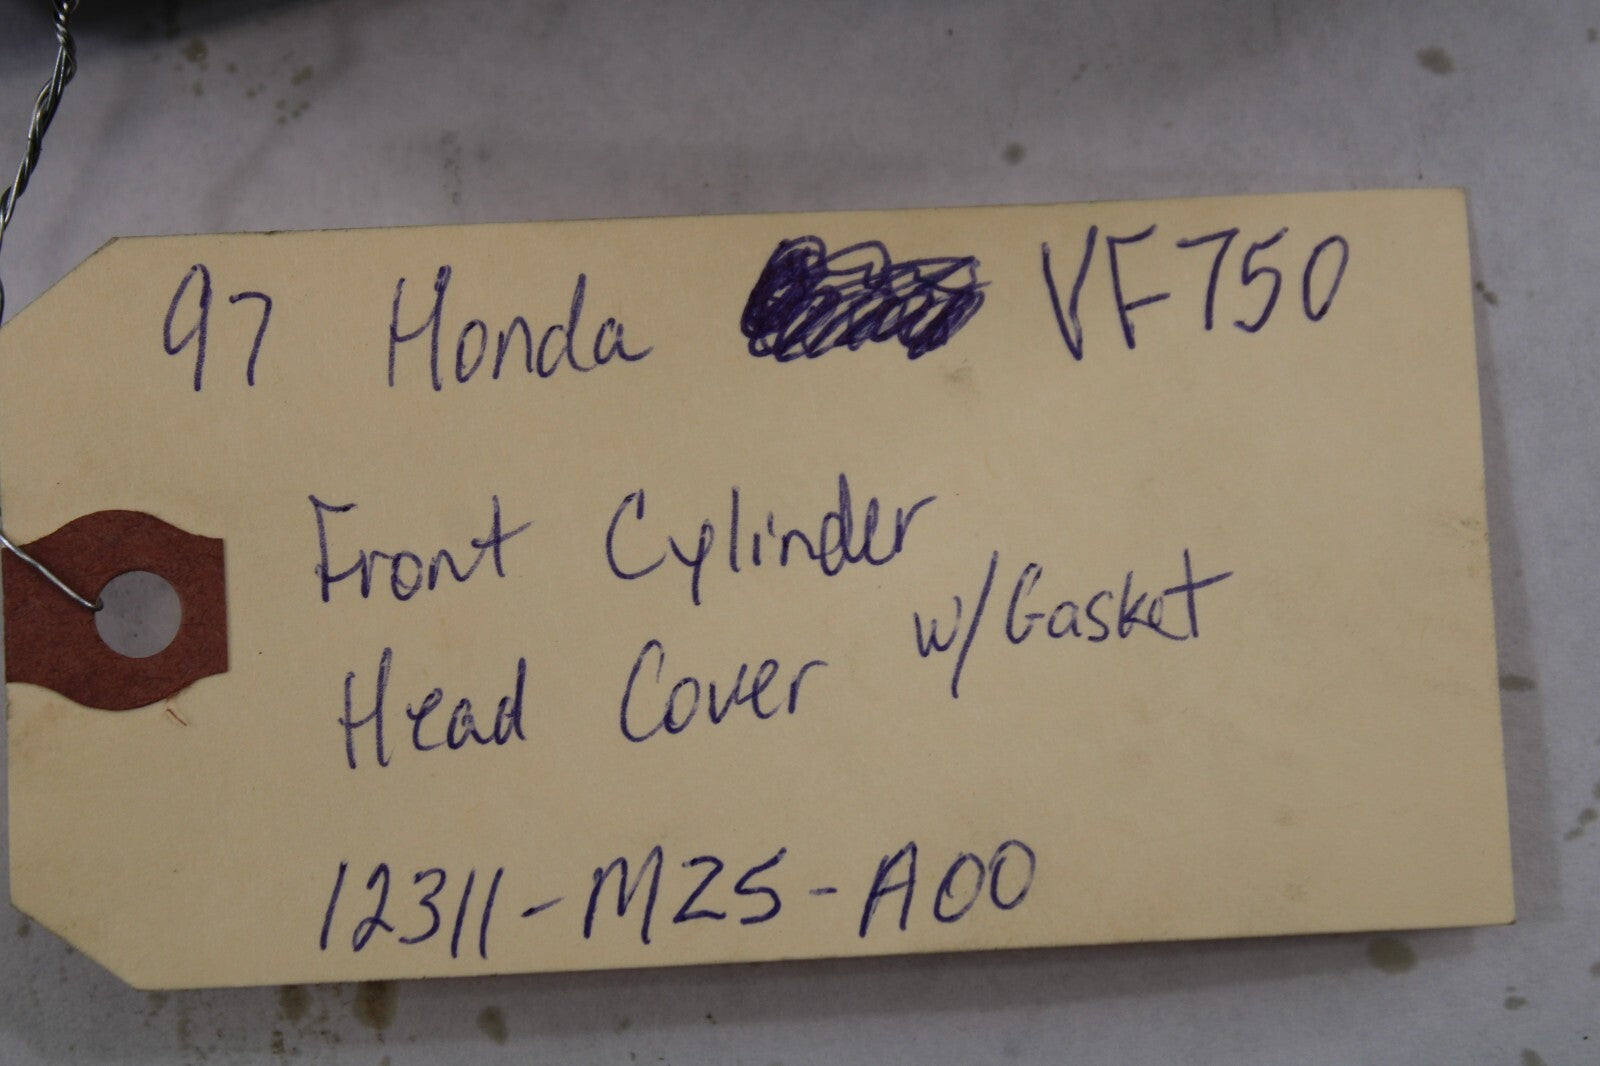 97 Honda VF750
Front Cylinder
Head Cover w/Gasket
12311-MZ5-A00